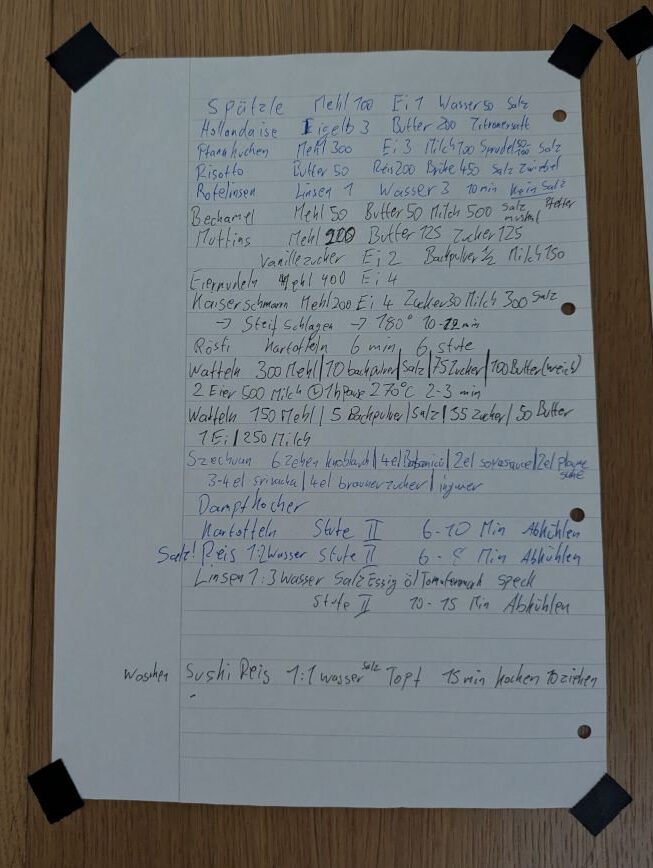 Spätzle Mehl 100 Ei 1 Wasser 50 Salz
Hollandaise Eigelb 3 Butter 200 Zitronensaft
Pfannkuchen Mehl 300 Ei 3 Milch 700 Sprudel Salz
Risotto Butter 50 Reis 200 Brühe 450 Salz Zwiebel
Rotelinsen Linsen 1 Wasser 3 10 min kein Salz
Bechamel Mehl 50 Butter 50 Milch 500 Salz Pfeffer
muskat
Muffins Mehl 200 Butter 125 Zucker 125
Vanillezucker Ei 2 Backpulver 1/2 Milch 150
Eiernudeln Mehl 400 Ei 4
Kaiserschmarrn Mehl 200 Ei 4 Zucker 30 Milch 300 Salz
→ Steif Schlagen → 180° 10-12 min
Rösti Kartoffeln 6 min 6 stufe
Waffeln 300 Mehl | 10 backpulver | Salz | 75 Zucker | 100 Butter (weich)
2 Eier 500 Milch 1h Pause 270°C 2-3 min
Waffeln 150 Mehl | 5 Backpulver | Salz | 35 Zucker | 50 Butter
1 Ei | 250 Milch
Szechuan 6 Zehen knoblauch | 4el Balsamico | 2el sojasauce | 2el
3-4 el sriracha | 4el brauner zucker | ingwer
Dampfkocher
Kartoffeln Stufe II 6-10 Min Abkühlen
Salz! Reis 1:2 Wasser Stufe II 6-8 Min Abkühlen
Linsen 1:3 Wasser Salz Essig öl Tomatenmark speck
Stufe II 10-15 Min Abkühlen
Waschen Sushi Reis 1:1 Wasser Salz Topf 15 min kochen 10 ziehen